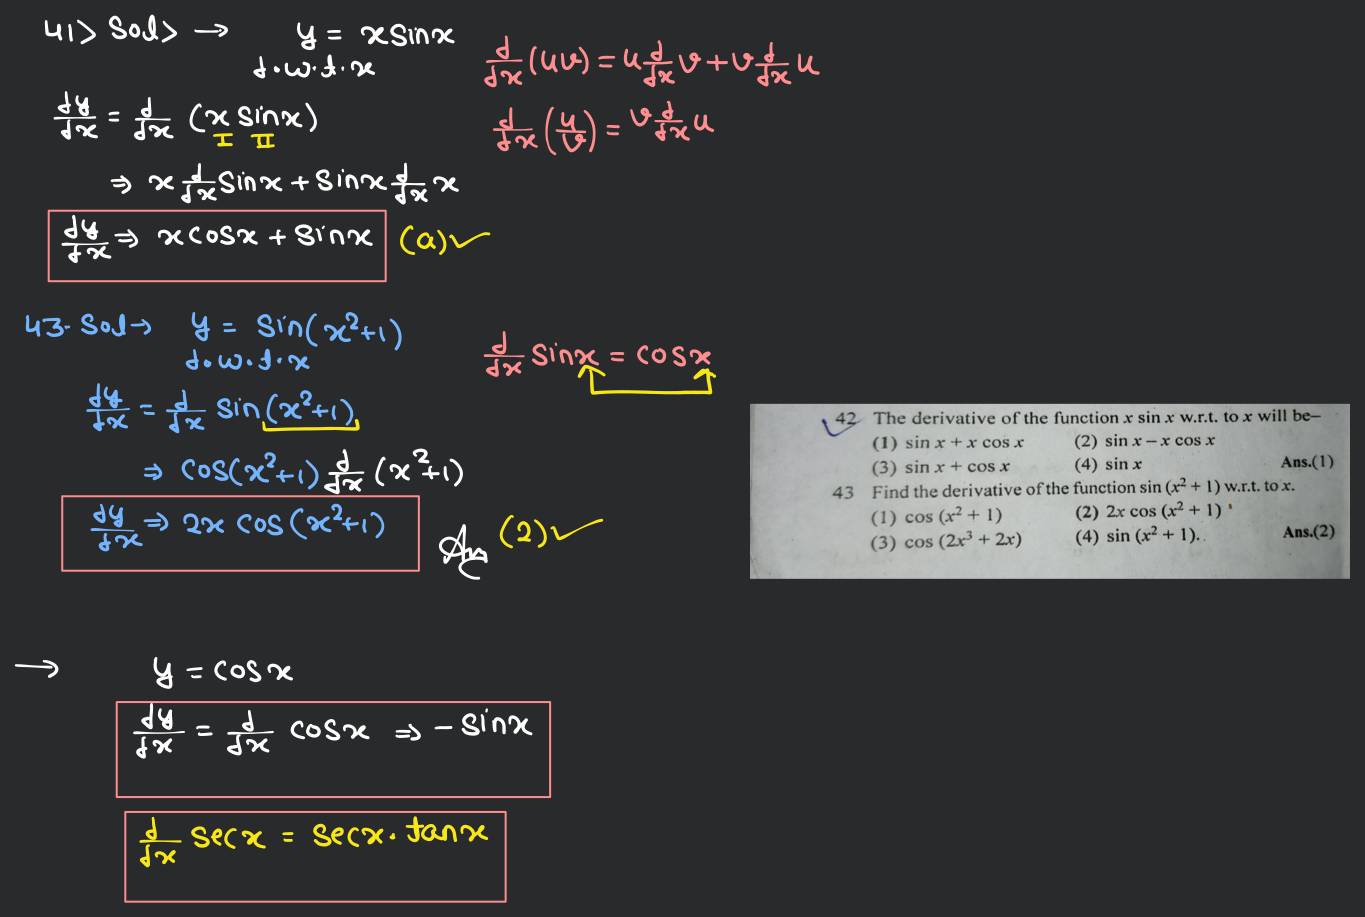 41> Sol> → y = x sinx
d.w.r.x
dy/dx = d/dx (x sinx)
I II
⇒ x d/dx sinx + sinx d/dx x
dy/dx ⇒ x cosx + sinx (a)✓
d/dx (uv) = u d/dx v + v d/dx u
d/dx (u/v) = v d/dx u
43. Sol → y = sin(x²+1)
d.w.r.x
dy/dx = d/dx sin(x²+1)
⇒ cos(x²+1) d/dx (x²+1)
dy/dx ⇒ 2x cos(x²+1) Ans (2)✓
d/dx sinx = cosx
42 The derivative of the function x sin x w.r.t. to x will be–
(1) sin x + x cos x (2) sin x – x cos x
(3) sin x + cos x (4) sin x Ans.(1)
43 Find the derivative of the function sin (x² + 1) w.r.t. to x.
(1) cos (x² + 1) (2) 2x cos (x² + 1)
(3) cos (2x³ + 2x) (4) sin (x² + 1). Ans.(2)
→ y = cosx
dy/dx = d/dx cosx ⇒ - sinx
d/dx secx = secx. tanx